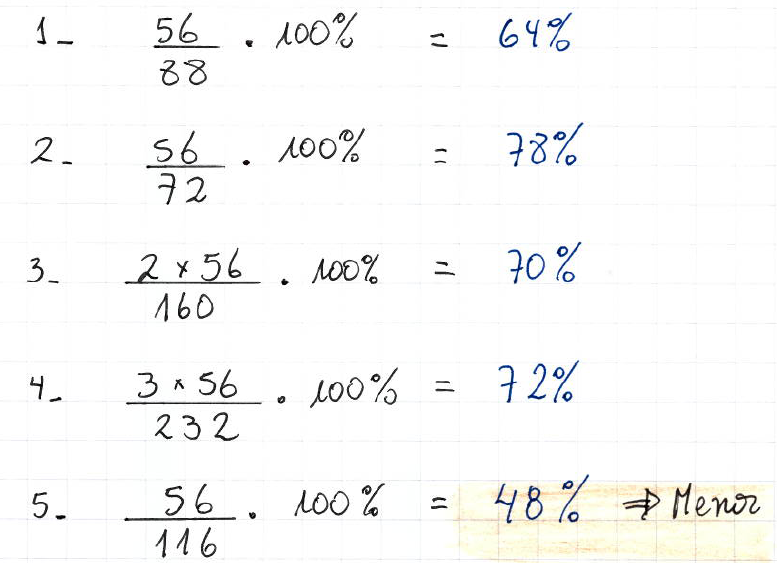 1- 56/88 . 100% = 64%
2- 56/72 . 100% = 78%
3- 2 x 56/160 . 100% = 70%
4- 3 x 56/232 . 100% = 72%
5- 56/116 . 100% = 48% ⇒ Menor